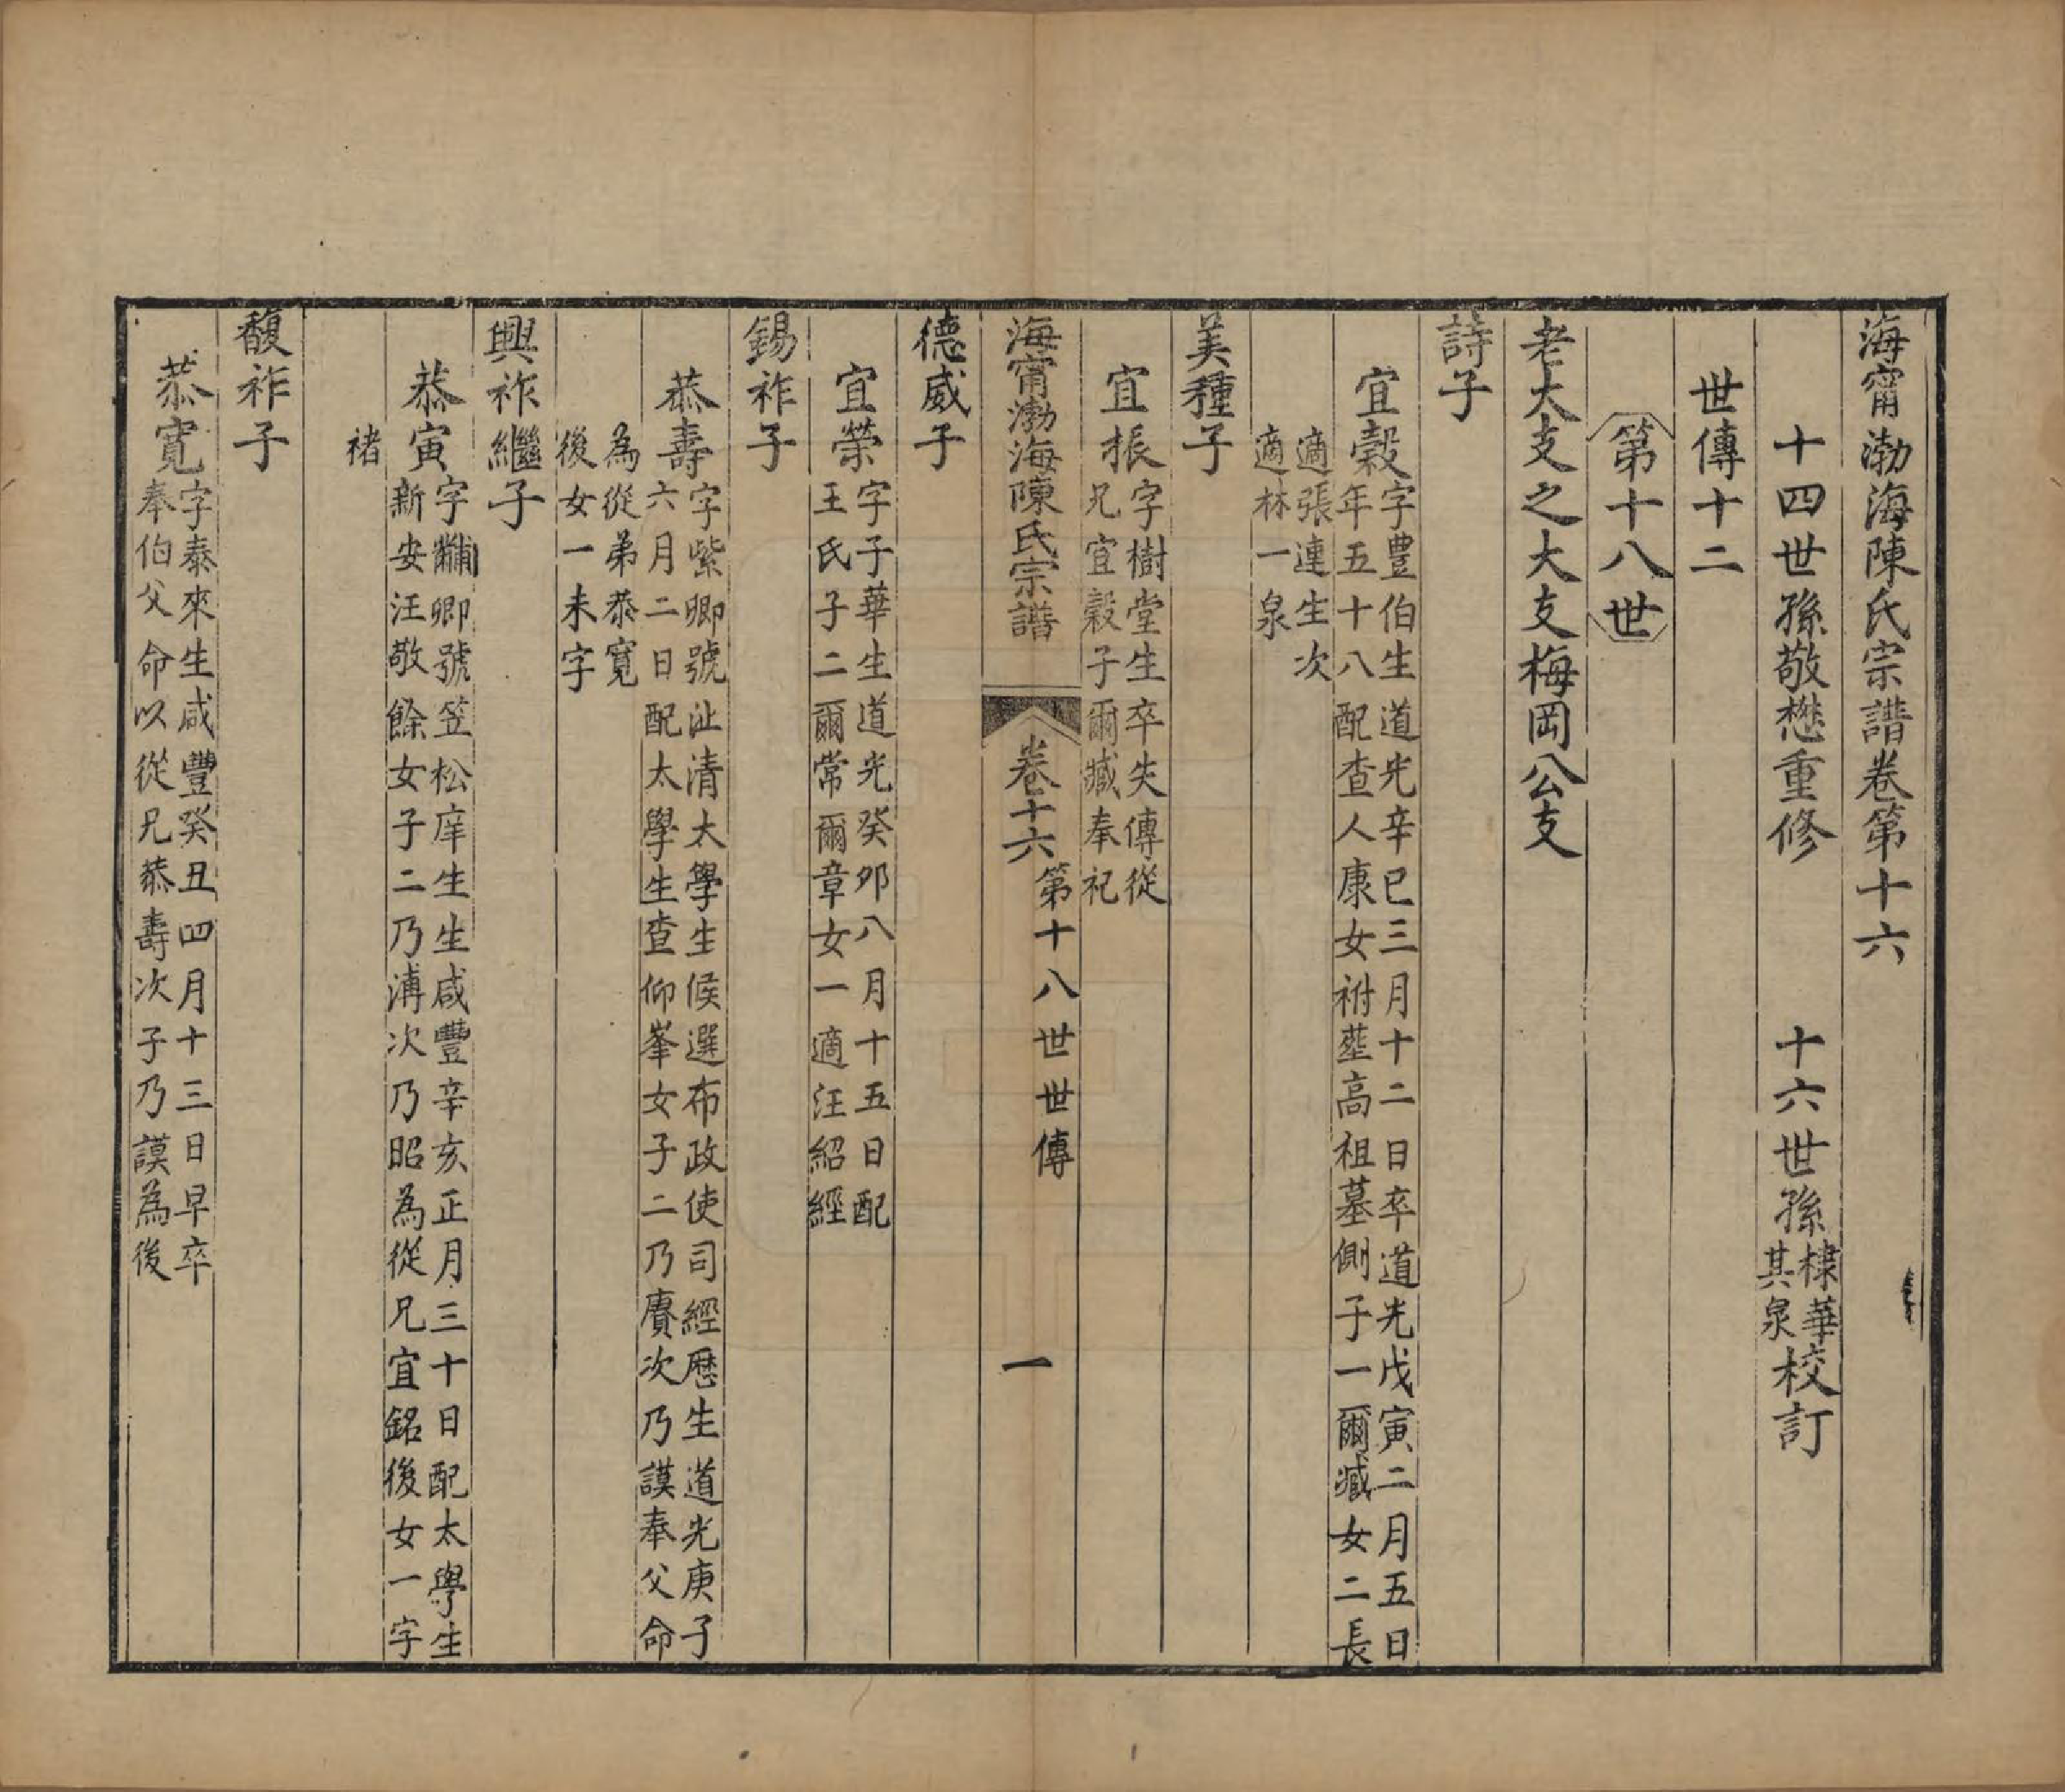 海甯渤海陳氏宗譜卷第十六
十四世孫敬懋重修　十六世孫棣華其泉校訂
世傳十二
第十八世
老大支之大支梅岡公支
詩子
宜榖字豐伯生道光辛巳三月十二日卒道光戊寅二月五日
年五十八配查人康女祔塟高祖墓側子一爾臧女二長
適張連生次
適林一泉
美種子
宜振字樹堂生卒失傳從
兄宜榖子爾臧奉祀
海甯渤海陳氏宗譜　卷十六　第十八世世傳　一
德威子
宜榮字子華生道光癸卯八月十五日配
王氏子二爾常爾章女一適汪紹經
錫祚子
恭壽字紫卿號沚清太學生候選布政使司經歷生道光庚子
六月二日配太學生查仰峯女子二乃賡次乃謨奉父命
為從弟恭寬
後女一未字
興祚繼子
恭寅字黼卿號笠松庠生生咸豐辛亥正月三十日配太學生
新安汪敬餘女子二乃溥次乃昭為從兄宜銘後女一字
褚
馥祚子
恭寬字泰來生咸豐癸丑四月十三日早卒
奉伯父命以從兄恭壽次子乃謨為後